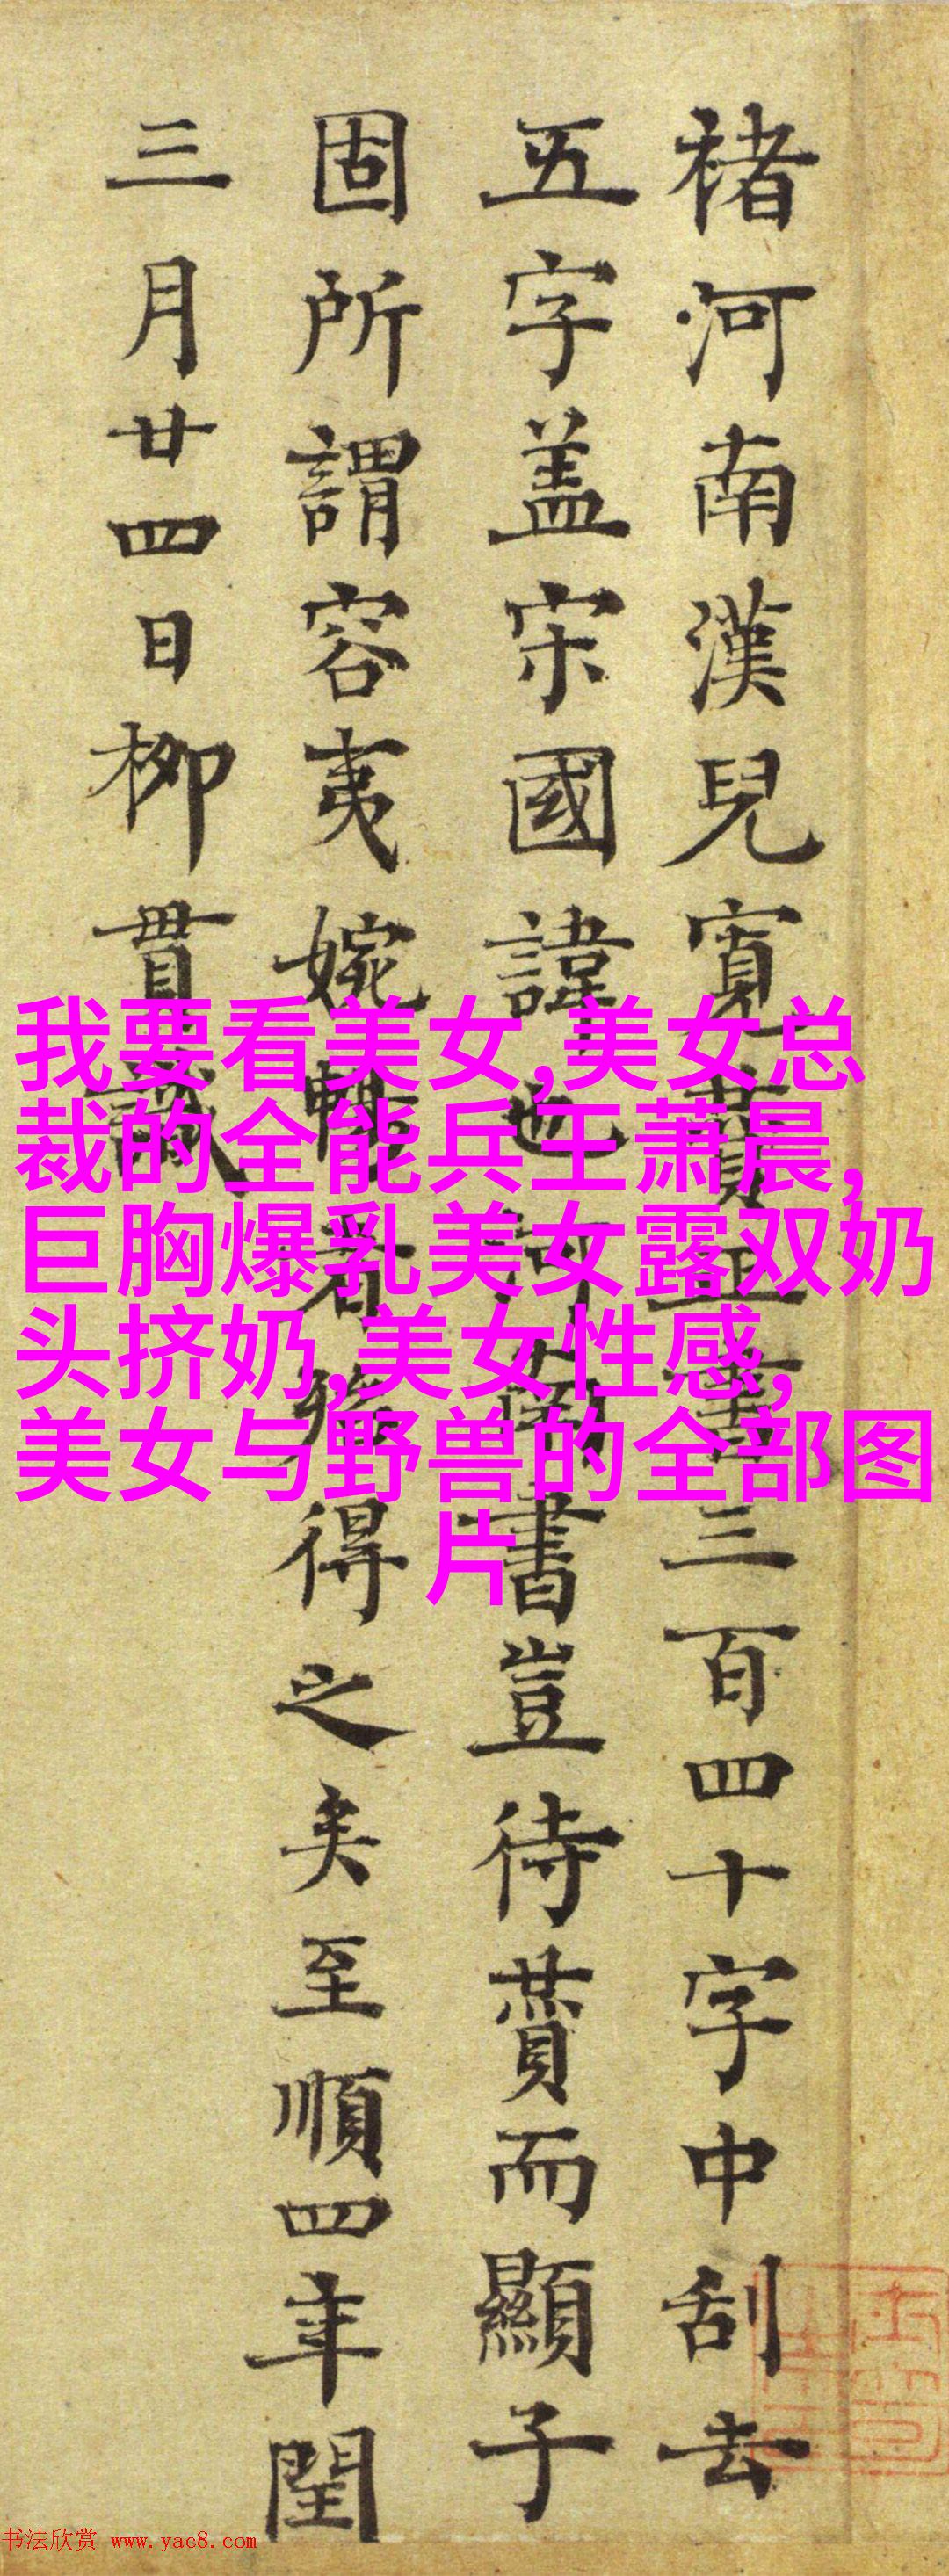 褚河南漢兒寬賛真墨三百四十字中刮去
五字盖宋國諱也河南書豈待賛而顯子
固所謂容夷婉暢者殆得之矣至順四年閏
三月廿四日柳貫識
我要看美女,美女总
裁的全能兵王萧晨,
巨胸爆乳美女露双奶
头挤奶,美女性感,
美女与野兽的全部图
片
书法欣赏 www.yac8.com